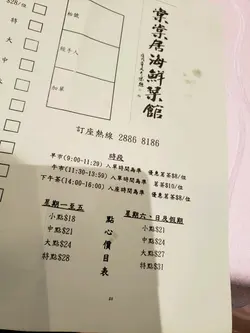 $28/位
特
大
中
枱號
經手人
加單
棠棠居海鮮菜館
訂座熱線 2886 8186
時段
早市(9:00-11:29) 入單時間為準 優惠茗茶$8/位
午市(11:30-13:59) 入單時間為準 茗茶$10/位
下午茶(14:00-16:00) 入座時間為準 優惠茗茶$8/位
星期一至五
小點$18
中點$21
大點$24
特點$28
點心價目表
星期六、日及假期
小點$21
中點$24
大點$27
特點$31